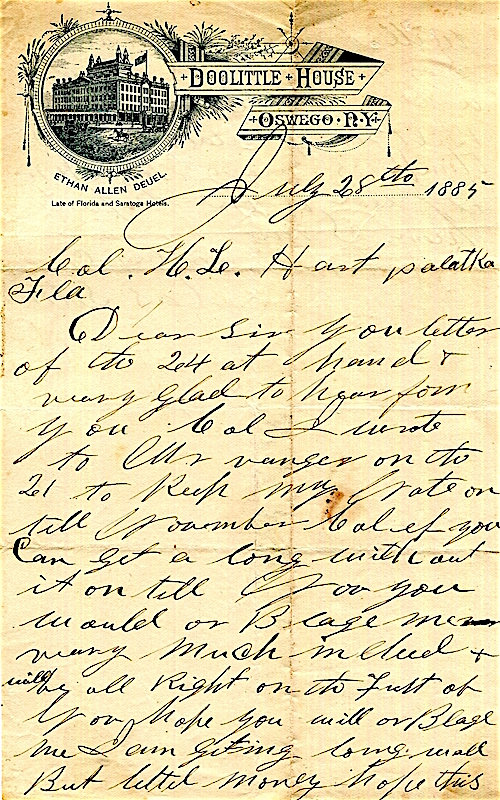 DOOLITTLE HOUSE
OSWEGO N.Y.
ETHAN ALLEN DEUEL.
Late of Florida and Saratoga Hotels.
July 28th 1885
Col. H. L. Hart palatka
Fla
Dear Sir you letter
of the 24 at hand &
very glad to hear form
you Col I wrote
to Mr on the
21 to Keep my Note on
till November Col ef you
Can get a long with out
it on till Nov you
would or Blage me
very much indeed &
will be all Right on the Furst of
Nov hope you will or Blage
me I am giting long well
But littel money hope this